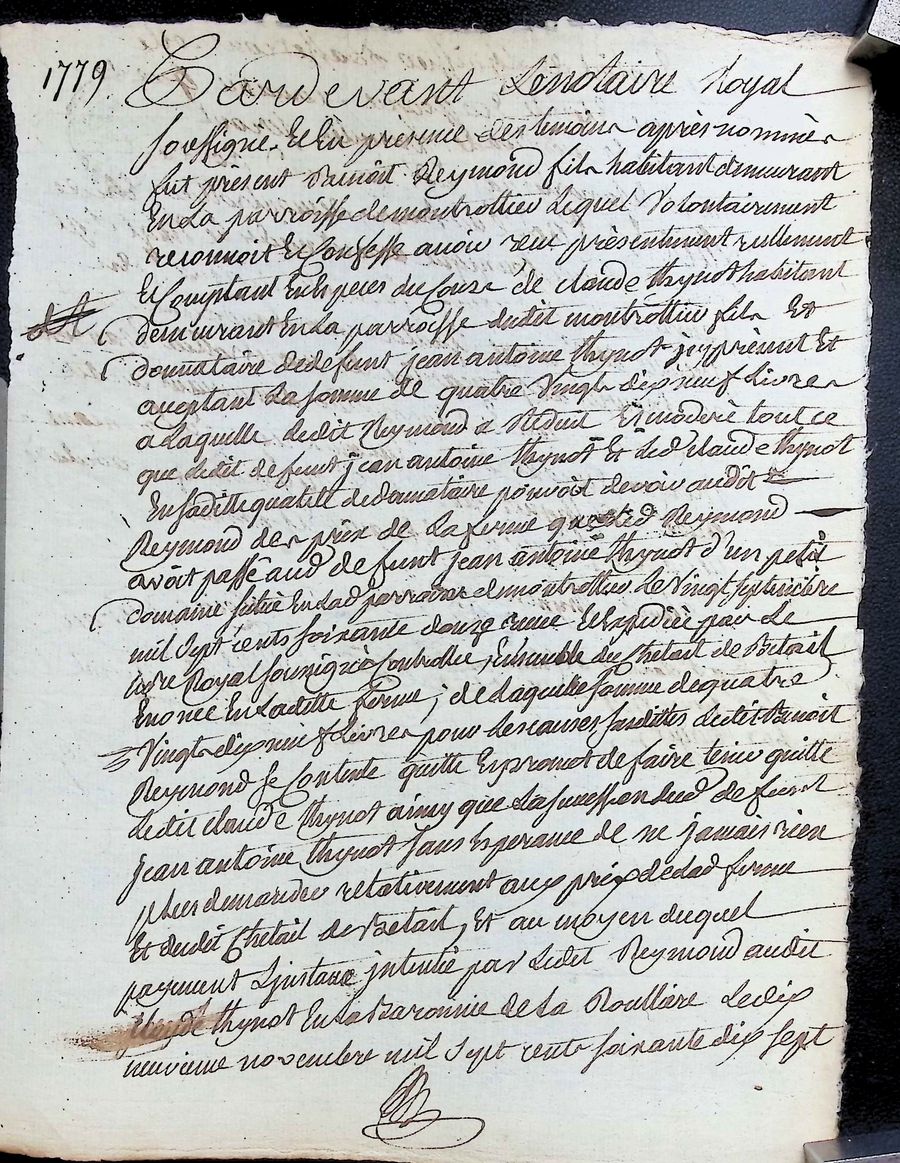 1779
Pardevant Lenotaire Royal
soussigné Et En présence des temoins après nommés
fut présent Benoit Reymond fils habitant demeurant
En La parroisse de montrottier Lequel Volontairement
reconnoit Et Confesse avoir reçu présentement réellement
Et Comptant En Especes du Cours de claude thynot habitant
demeurant En La parroisse dudit montrottier fils Et
donnataire de defunt jean antoine thynot jcy présent Et
aceptant La somme de quatre Vingt dix neuf Livres
a Laquelle Ledit Reymond a Réduit Et modéré tout ce
que Ledit defunt jean antoine thynot Et Led claude thynot
En saditte qualité de donnataire pouvoit devoir audit
Reymond des prix de La ferme que Led Reymond
avoit passé aud defunt jean antoine thynot d'un petit
domaine situé En Lad parroisse de montrottier Le Vingt sept
mil sept cents soixante douze reçue Et Expédiée par Le
nore Royal soussigné Controllée, Ensemble du Chetail de Betail
Enoncé En Laditte ferme; de Laquelle somme de quatre
Vingt dix neuf Livres pour Les causes susdittes Ledit Benoit
Reymond se Contente quitte Et promet de faire tenir quitte
Ledit claude thynot ainsy que La succession dud defunt
jean antoine thynot sans Esperance de ne jamais rien
plus demander relativement aux prix de Lad ferme
Et dudit Chetail de Betail, Et au moyen duquel
payement L'jnstance jntentée par Ledit Reymond audit
claude thynot En La Baronnie de La Roulliere Le dix
neuvieme novembre mil sept cents soixante dix sept